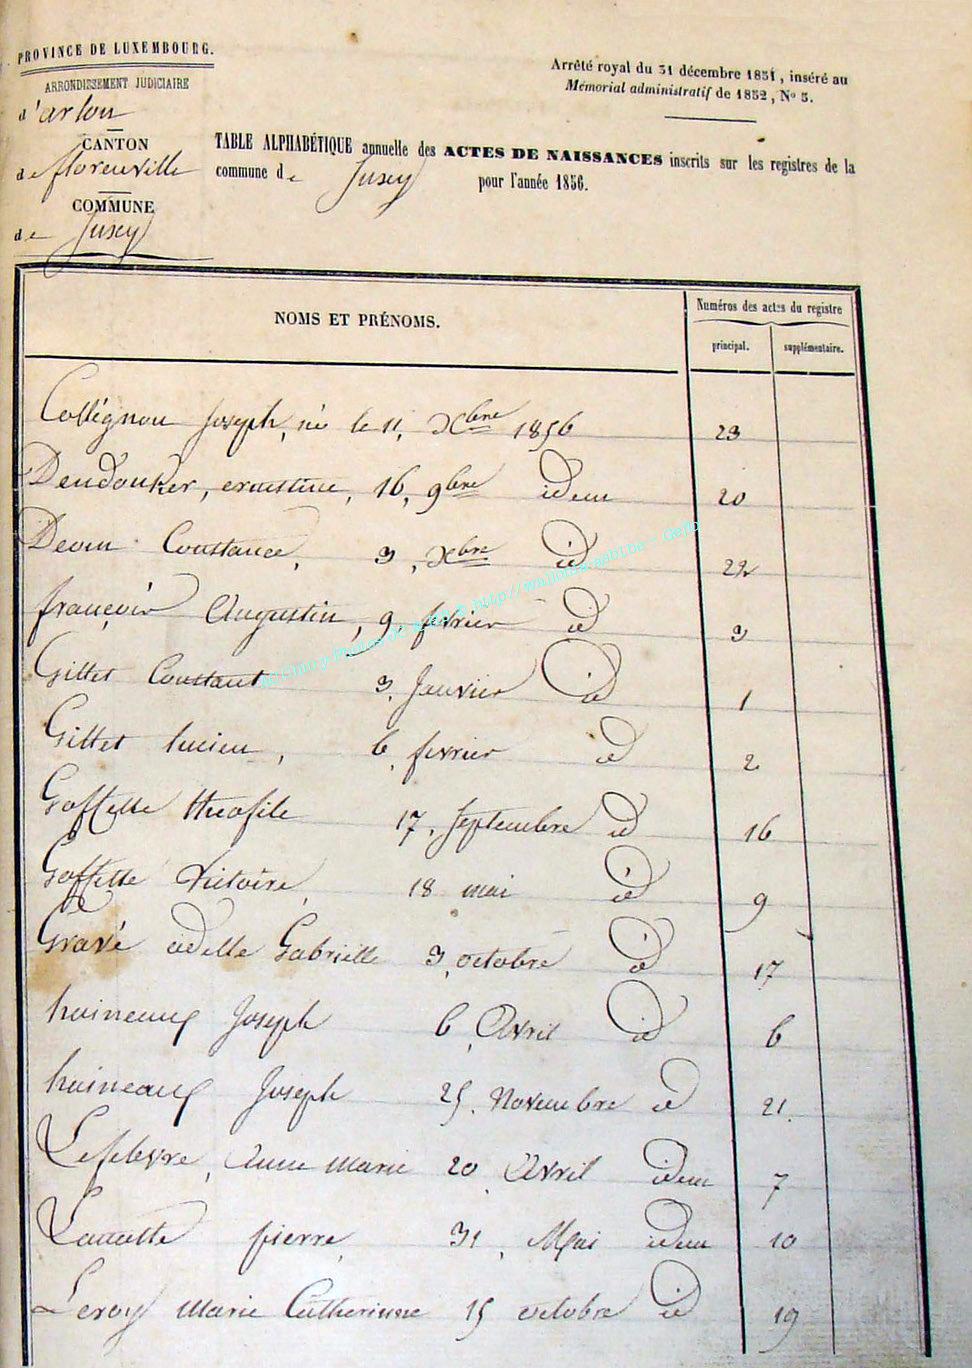 PROVINCE DE LUXEMBOURG.
ARRONDISSEMENT JUDICIAIRE
d'arlon
CANTON
de florenville
COMMUNE
de Jusey
Arrêté royal du 31 décembre 1851, inséré au
Mémorial administratif de 1852, No 5.
TABLE ALPHABÉTIQUE annuelle des ACTES DE NAISSANCES inscrits sur les registres de la
commune de Jusey pour l'année 1856.
NOMS ET PRÉNOMS.
Numéros des actes du registre
principal. supplémentaire.
Collignon Joseph, né le 11, Xbre 1856 23
Dendonker, ernestine, 16, 9bre idem 20
Devin Constance, 3, Xbre id 22
françois Augustin, 9, février id 3
Gillet Constant 3, Janvier id 1
Gillet lucien, 6, fevrier id 2
Goffette théofile 17, Septembre id 16
Goffette Victoire, 18 mai id 9
Gravé odelle Gabrielle 3, octobre id 17
haineaux Joseph 6, Avril id 6
haineaux Joseph 25, Novembre id 21.
Lefebvre, Anne Marie 20, Avril idem 7
pierre, 31, Mai idem 10
Leroy Marie Catherinne 15 octobre id 19